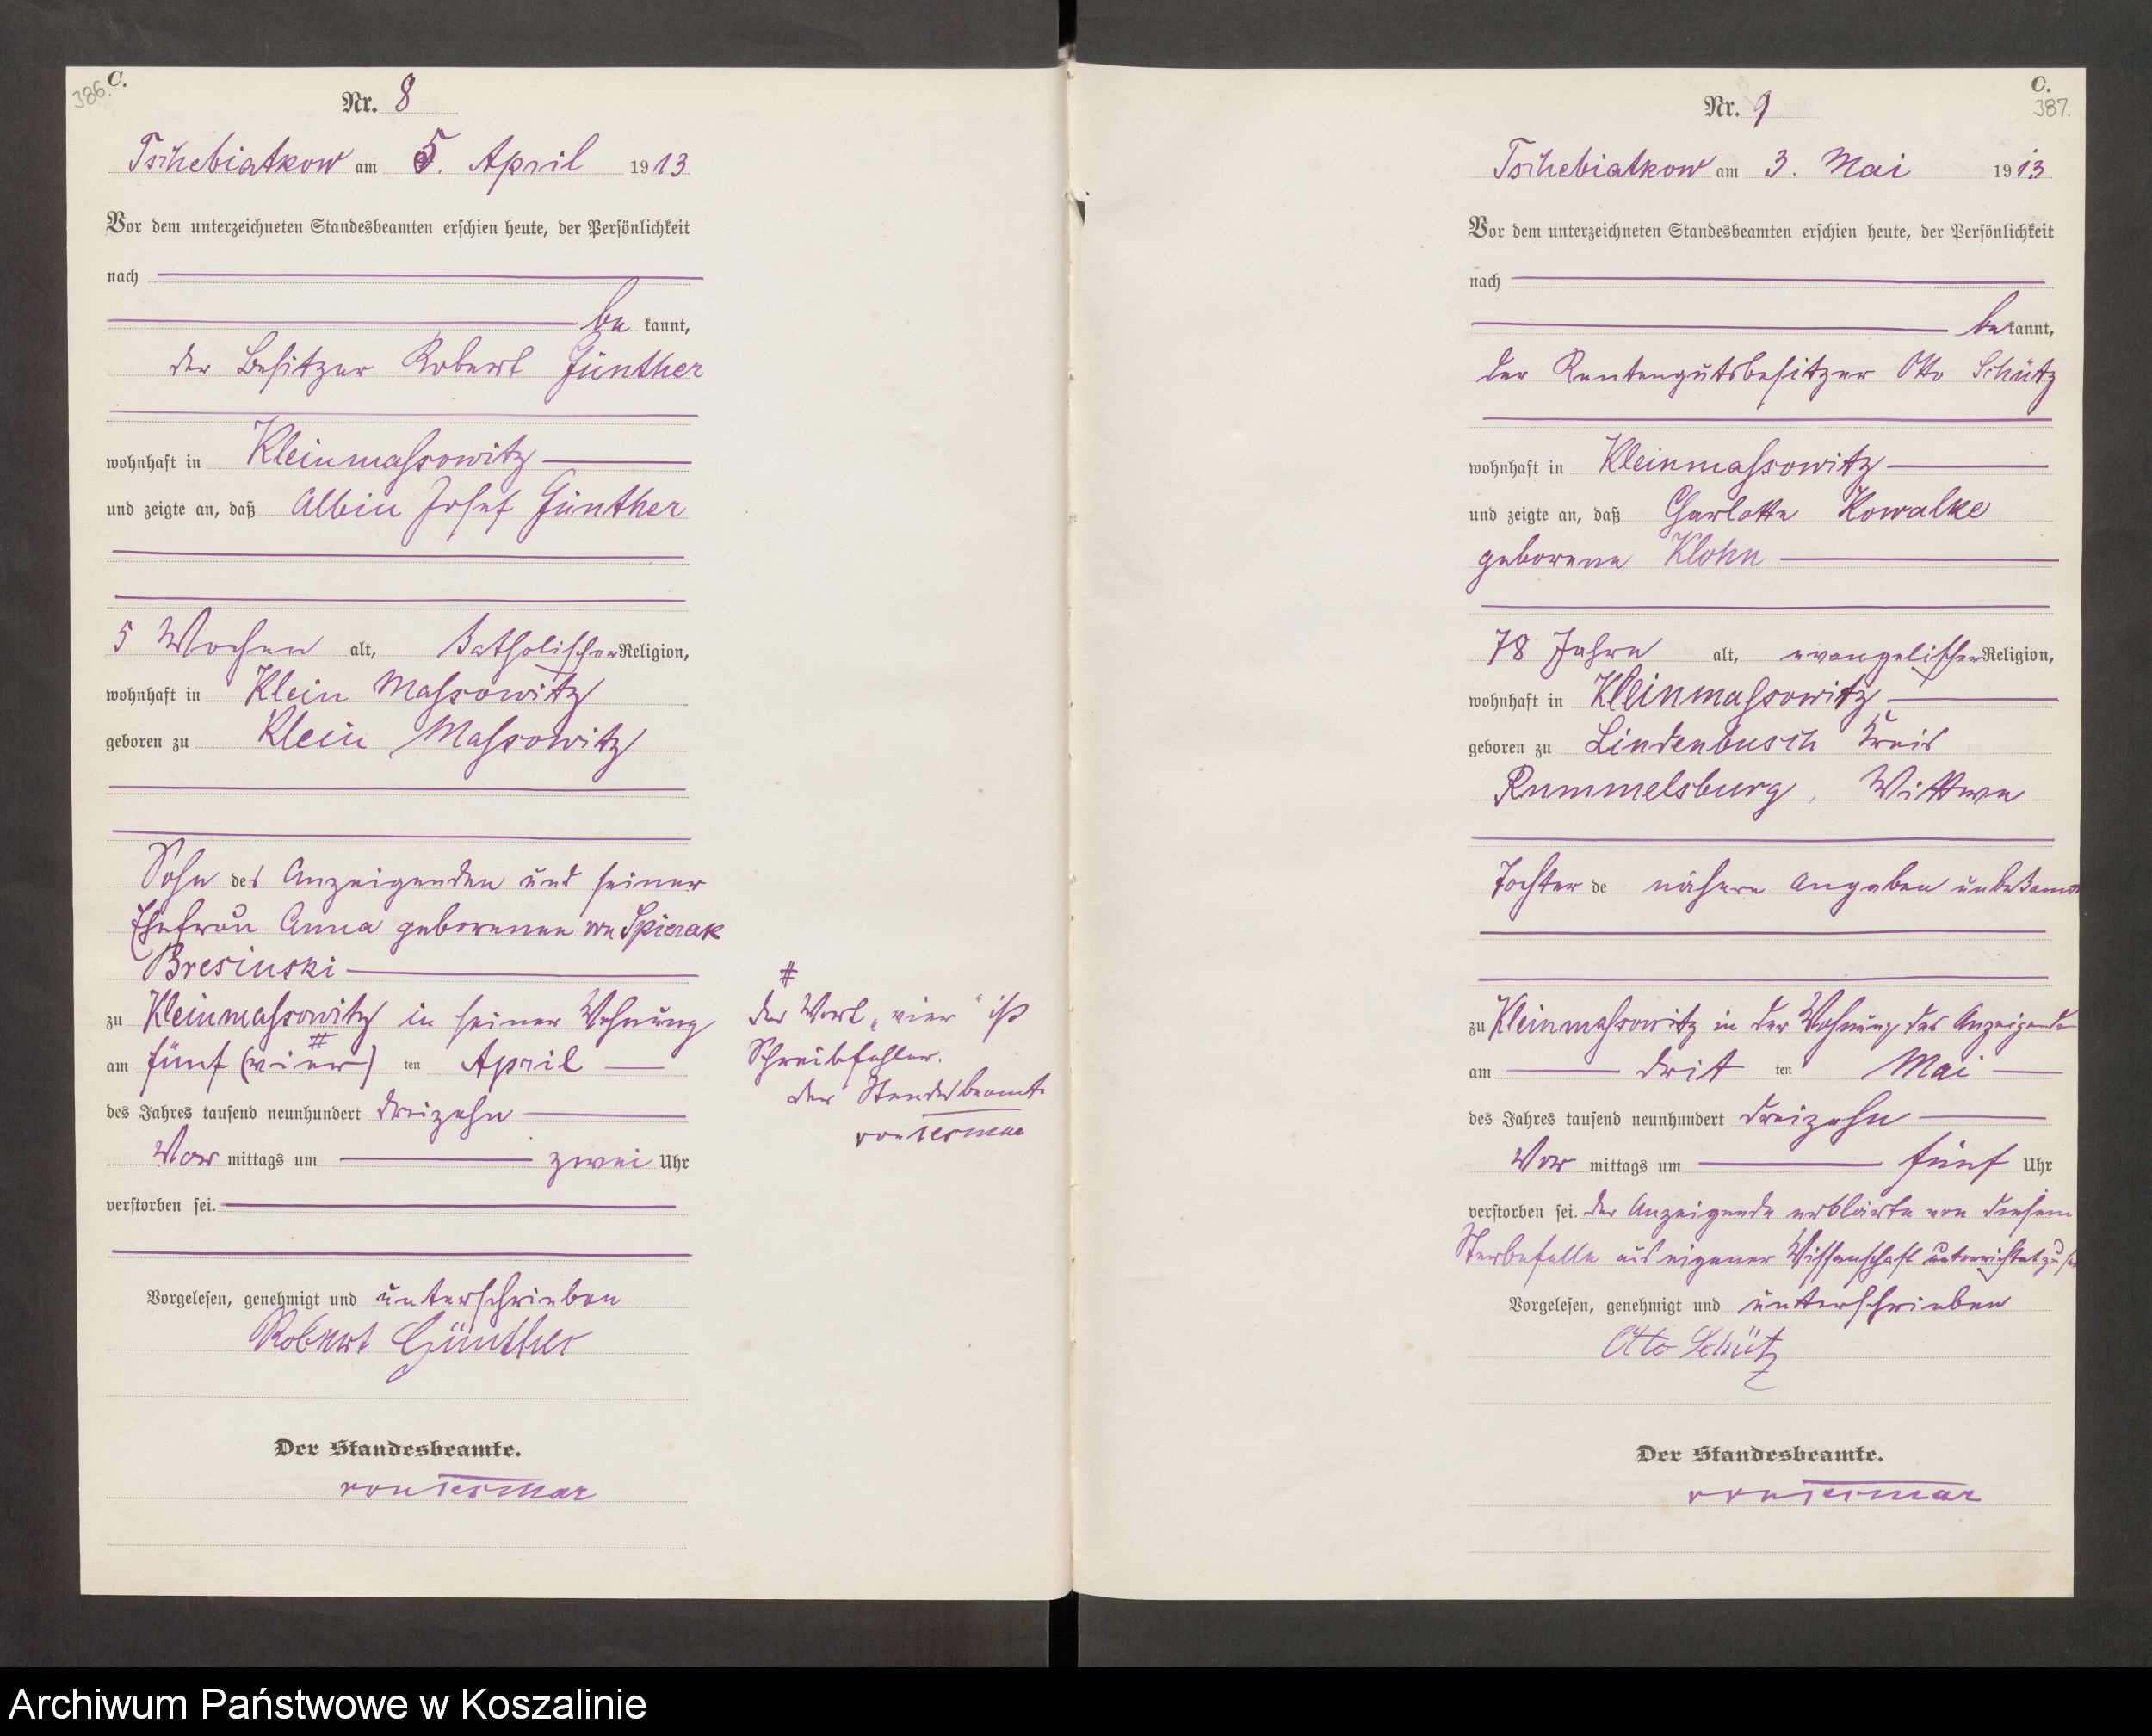 386.
C.
Nr. 8
Tschebiatkow am 5. April 1913
Vor dem unterzeichneten Standesbeamten erschien heute, der Persönlichkeit
nach
be kannt,
der Besitzer Robert Günther
wohnhaft in Kleinmassowitz
und zeigte an, daß Albin Josef Günther
5 Wochen alt, katholischer Religion,
wohnhaft in Klein Massowitz
geboren zu Klein Massowitz
Sohn des Anzeigenden und seiner
Ehefrau Anna geborenen von Spiczak
Bresinski
zu Kleinmassowitz in seiner Wohnung
#
am fünf (vier) ten April
des Jahres tausend neunhundert dreizehn
Vor mittags um zwei Uhr
verstorben sei.
Vorgelesen, genehmigt und unterschrieben
Robert Günther
Der Standesbeamte.
von Tesmar
#
das Wort „vier“ ist
Schreibfehler.
der Standesbeamte
von Tesmar
C.
387.
Nr. 9
Tschebiatkow am 3. Mai 1913
Vor dem unterzeichneten Standesbeamten erschien heute, der Persönlichkeit
nach
be kannt,
der Rentengutsbesitzer Otto Schütz
wohnhaft in Kleinmassowitz
und zeigte an, daß Charlotte Kowalke
geborene Klohn
78 Jahre alt, evangelischer Religion,
wohnhaft in Kleinmassowitz
geboren zu Lindenbusch Kreis
Rummelsburg, Wittwe
Tochter de nähere Angaben unbekannt
zu Kleinmassowitz in der Wohnung des Anzeigenden
am drit ten Mai
des Jahres tausend neunhundert dreizehn
Vor mittags um fünf Uhr
verstorben sei. der Anzeigende erklärte von diesem
Sterbefalle aus eigener Wissenschaft unterrichtet zu sein
Vorgelesen, genehmigt und unterschrieben
Otto Schütz
Der Standesbeamte.
von Tesmar
Archiwum Państwowe w Koszalinie